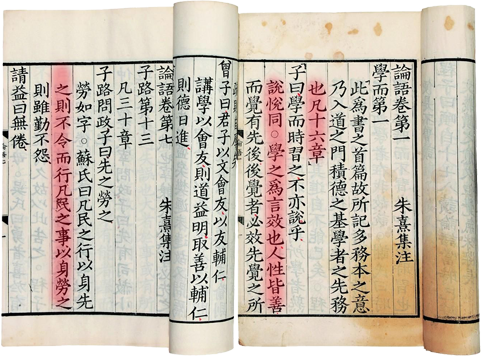 論語卷第一 朱熹集注
學而第一
此爲書之首篇故所記多務本之意
乃入道之門積德之基學者之先務
也凡十六章
子曰學而時習之不亦說乎
說悅同○學之爲言效也人性皆善
而覺有先後後覺者必效先覺之所
曾子曰君子以文會友以友輔仁
講學以會友則道益明取善以輔仁
則德日進
論語卷第七 朱熹集注
子路第十三
凡三十章
子路問政子曰先之勞之
勞如字○蘇氏曰凡民之行以身先
之則不令而行凡民之事以身勞之
則雖勤不怨
請益曰無倦